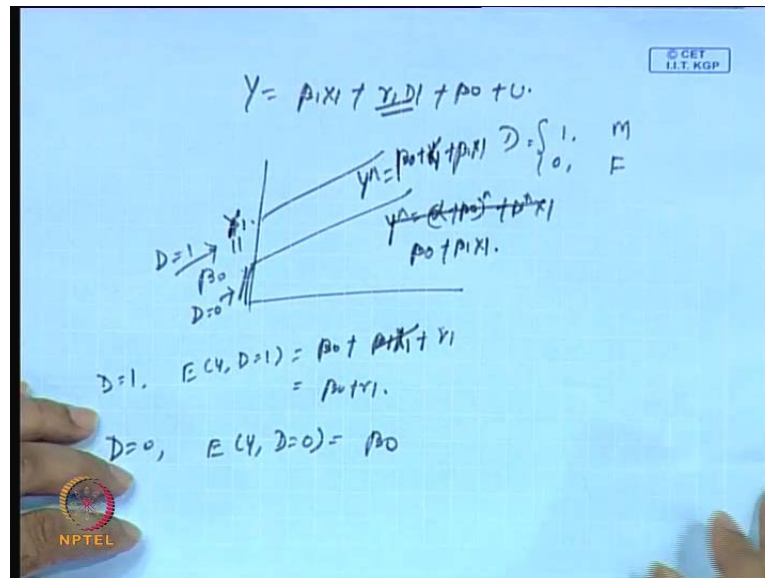 © CET
I.I.T. KGP
Y = β1X1 + γ1D1 + β0 + U.
Y^ = β0 + γ1 + β1X1
D = { 1, M
0, F
γ1.
D=1
β0
D=0
β0 + β1X1.
D=1, E(Y, D=1) = β0 + γ1
= β0 + γ1.
D=0, E(Y, D=0) = β0
NPTEL